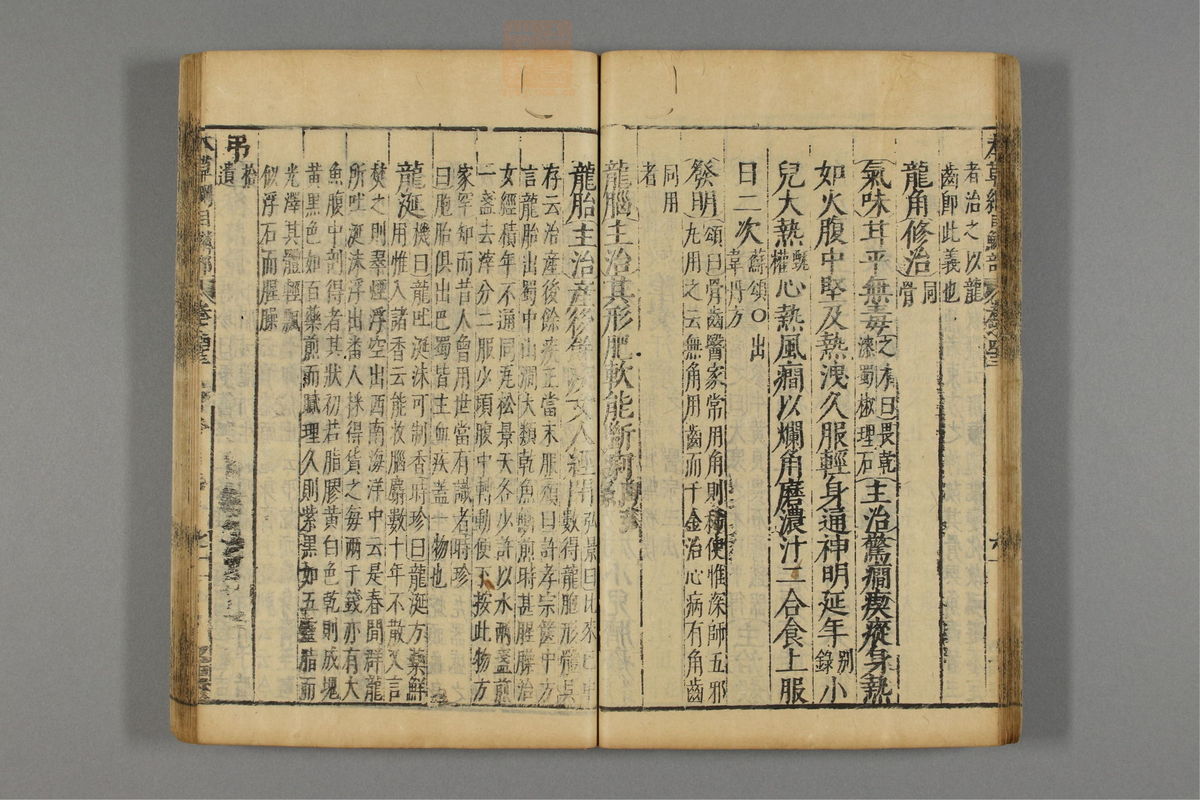 者治之以龍
齒即此義也
龍角修治同骨
氣味甘平無毒之才曰畏乾漆蜀椒理石主治驚癎瘈瘲身熱
如火腹中堅及熱洩久服輕身通神明延年別錄小
兒大熱甄權心熱風癎以爛角磨濃汁二合食上服
日二次蘇頌○出韋丹方
發明頌曰骨齒醫家常用角則稀使惟深師五邪
丸用之云無角用齒而千金治心病有角齒
同用
者
龍腦主治其形肥軟能斷痢
龍胎主治產後餘疾女人經閉弘景曰比來巴中數得龍胞形體具
存云治產後餘疾正當末服頌曰許孝宗篋中方
言龍胎出蜀中山澗大類乾魚鱗煎時甚腥臊治
女經積年不通同瓦松景天各少許以水兩盞煎
一盞去滓分二服少頃腹中轉動便下按此物方
家罕知而昔人曾用世當有識者時珍
曰胞胎俱出巴蜀皆主血疾蓋一物也
龍涎機曰龍吐涎沫可制香時珍曰龍涎方藥鮮
用惟入諸香云能收腦麝數十年不散又言
焚之則翠煙浮空出西南海洋中云是春間群龍
所吐涎沫浮出番人採得貨之每兩千錢亦有大
魚腹中剖得者其狀初若脂膠黃白色乾則成塊
黃黑色如百藥煎而膩理久則紫黑如五靈脂而
光澤其體輕飄
似浮石而腥臊
弔拾遺